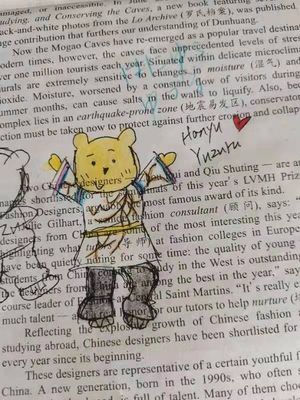 damaged, or inaccessible. In June
udying, and Conserving the Caves, a new book featuring se
ack-and-white photos from the Lo Archive (罗氏档案), was published.
uge contribution that furthers our understanding of Dunhuang.
Now the Mogao Caves have re-emerged as a popular travel destinat
odern times, however, the caves face unprecedented levels of stre
over one million tourists each year. Situated within delicate microclim
urals are extremely sensitive to changes in moisture (湿气) and
oxide. Moisture, worsened by a constant flow of visitors during
mmer months, can cause salts in the walls to liquify. Also, be
omplex lies in an earthquake-prone zone (地震易发区), conservator
ction must be taken now to protect against further erosion and collap
Hanyu
Yuzuru
Chinese designers
ui and Qiu Shuring — are a
shortlis
nalists of this year's LVMH Priz
Fashion Designers
most famous award of its kind.
Gilhart,
fashion consultant (顾问), says:
designers from C
of the most interesting this year
ighting what
at fashion colleges in Europe
ave been quie
iding for some time: the quality of young
students
Chin
udy in the West is outstanding
esigners from Chin
ng the best in the year," say
course leader of
al Saint Martins. "It's really e
much talent — a
or our tutors to help nurture
Reflecting the explo
growth of Chinese fashion
studying abroad, Chinese designers have been shortlisted for
every year since its beginning.
These designers are representative of a certain youthful f
China. A new generation, born in the 1990s, who often s
and is full of talent. Many of them choo